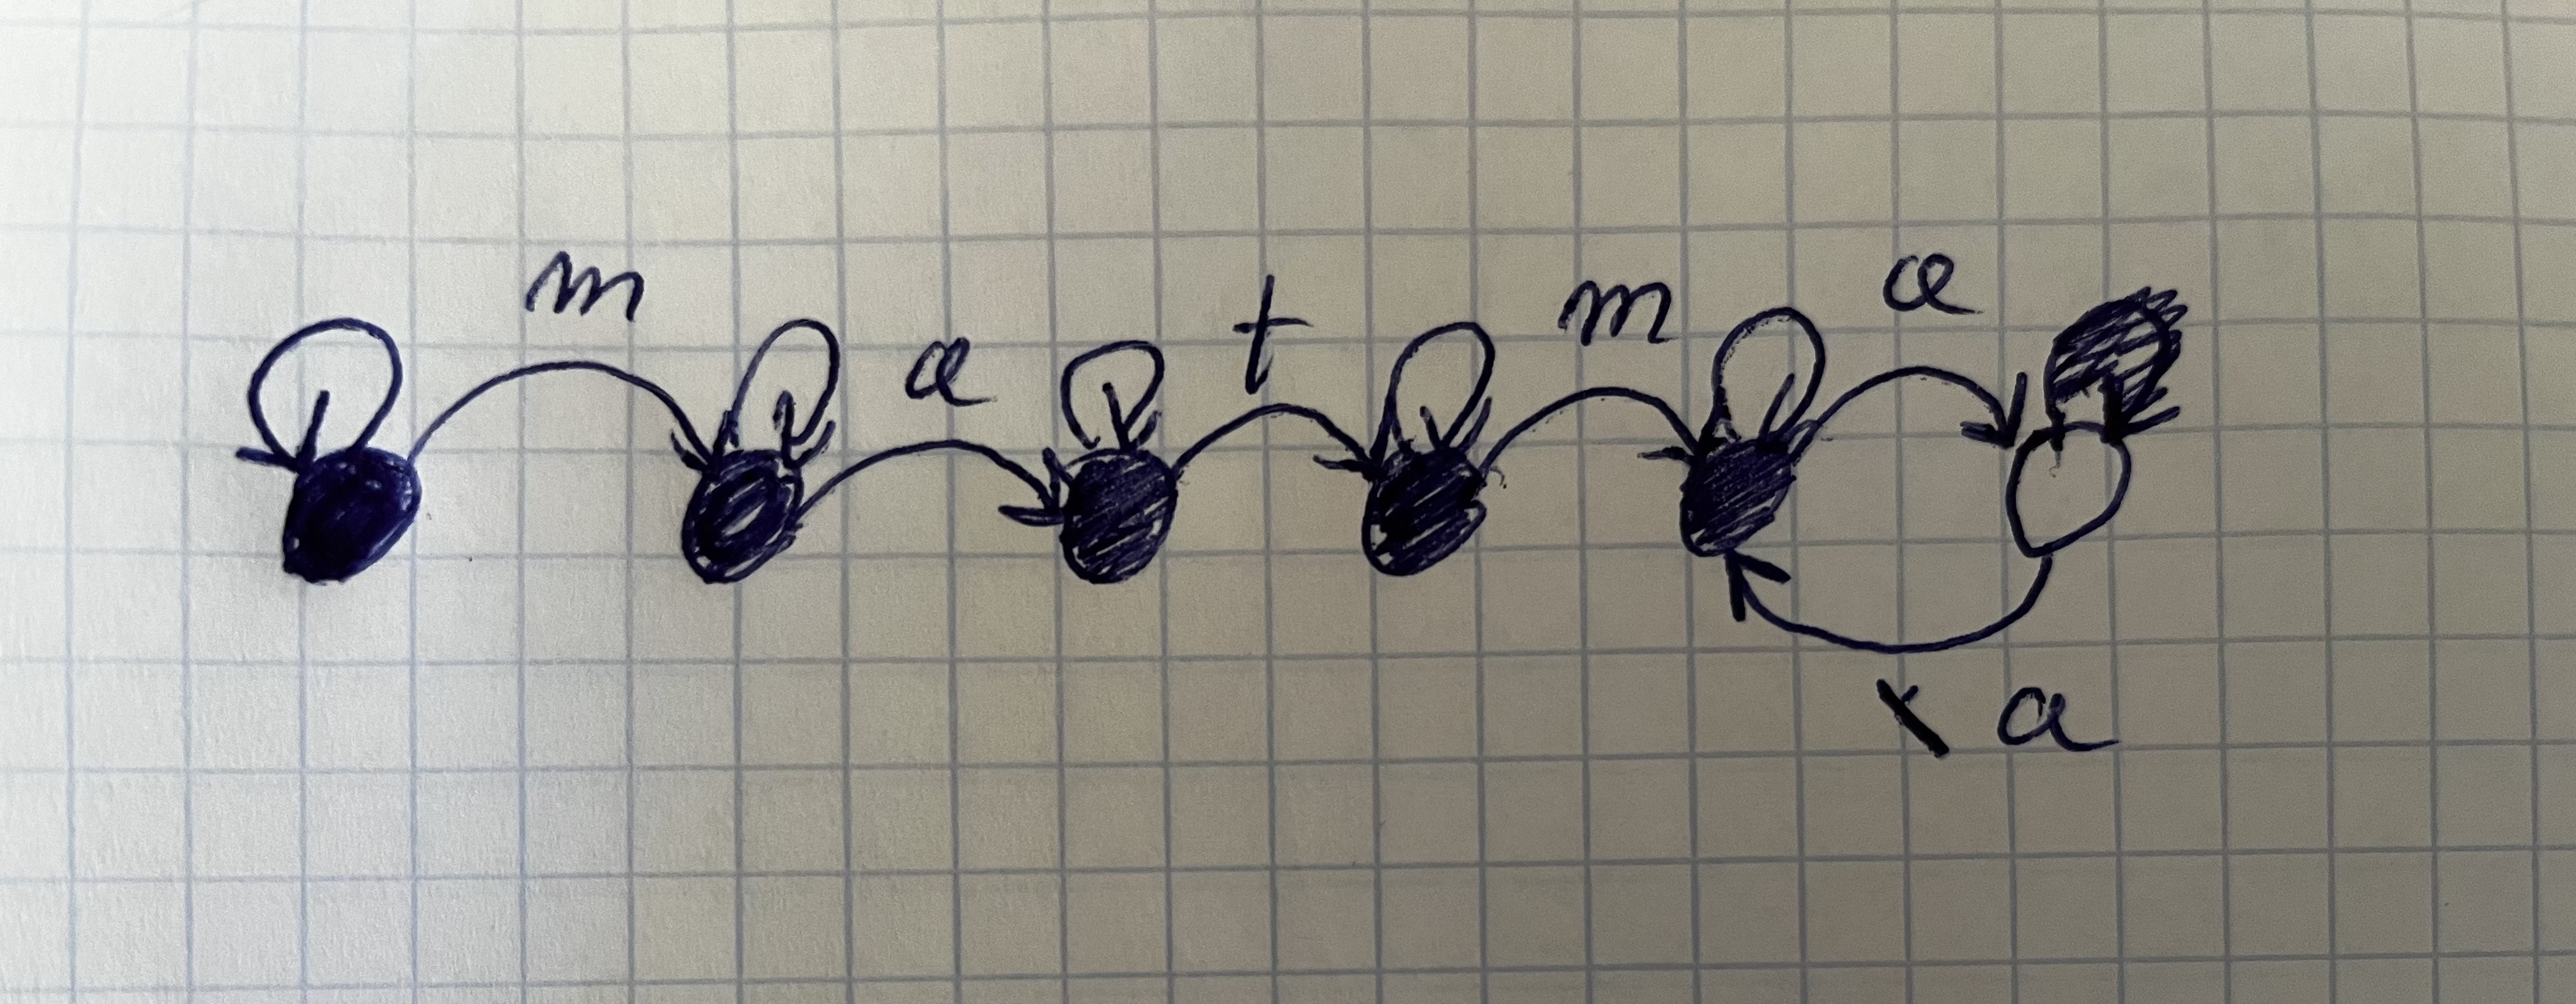 m a t m a
\ a